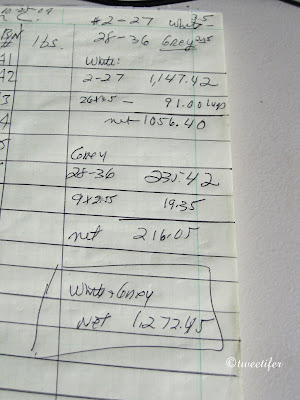 # 2-27 White 3.5
BIN
# lbs. 28-36 Grey 2.15
A1 White:
A2 2-27 1,147.42
3 26x3.5 — 91.00 lugs
4 net 1056.40
Grey
28-36 235.42
9x2.15 19.35
net 216.05
White + Grey
Net 1,272.45
©tweetifer